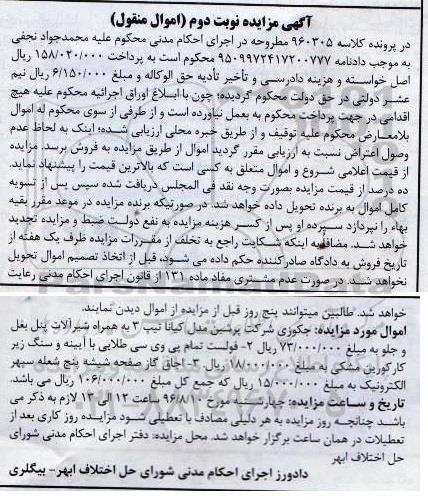 آگهی مزایده نوبت دوم (اموال منقول)
در پرونده کلاسه ۹۶۰۳۰۵ مطروحه در اجرای احکام مدنی محکوم علیه محمدجواد نجفی
به موجب دادنامه ۹۵۰۹۹۷۲۴۱۷۲۰۰۷۷۷ محکوم است به پرداخت ۱۵۸/۰۲۰/۰۰۰ ریال
اصل خواسته و هزینه دادرسی و تأخیر تأدیه حق الوکاله و مبلغ ۶/۱۵۰/۰۰۰ ریال نیم
عشر دولتی در حق دولت محکوم گردیده؛ چون با ابلاغ اوراق اجرائیه محکوم علیه هیچ
اقدامی در جهت پرداخت محکوم به بعمل نیاورده است و از طرفی از سوی محکوم له اموال
بلامعارض محکوم علیه توقیف و از طریق خبره محلی ارزیابی شده؛ اینک به لحاظ عدم
وصول اعتراض نسبت به ارزیابی مقرر گردید اموال از طریق مزایده به فروش برسد. مزایده
از قیمت اعلامی شروع و اموال متعلق به کسی است که بالاترین قیمت را پیشنهاد نماید.
ده درصد از قیمت مزایده بصورت وجه نقد فی المجلس دریافت شده سپس پس از تسویه
کامل اموال به برنده تحویل داده خواهد شد. در صورتیکه برنده مزایده در موعد مقرر بقیه
بهاء را نپردازد سپرده او پس از کسر هزینه مزایده به نفع دولت ضبط و مزایده تجدید
خواهد شد. مضافاً اینکه شکایت راجع به تخلف از مقررات مزایده ظرف یک هفته از
تاریخ فروش به دادگاه صادرکننده حکم داده می شود، قبل از اتخاذ تصمیم اموال تحویل
نخواهد شد. در صورت عدم مشتری مفاد ماده ۱۳۱ از قانون اجرای احکام مدنی رعایت
خواهد شد. طالبین میتوانند پنج روز قبل از مزایده از اموال دیدن نمایند.
اموال مورد مزایده: جکوزی شرکت پرشین مدل کیانا تیپ ۳ به همراه شیرآلات پنل بغل
و جلو به مبلغ ۷۳/۰۰۰/۰۰۰ ریال ۲- فولست تمام پی وی سی طلایی با آیینه و سنگ زیر
کارکورین مشکی به مبلغ ۱۸/۰۰۰/۰۰۰ ریال ۳- اجاق گاز صفحه شیشه پنج شعله سپهر
الکترونیک به مبلغ ۱۵/۰۰۰/۰۰۰ ریال که جمع کل مبلغ ۱۰۶/۰۰۰/۰۰۰ ریال می باشد.
تاریخ و ساعت مزایده: چهارشنبه مورخ ۹۶/۸/۱۰ ساعت ۱۲ الی ۱۳ لازم به ذکر می
باشد چنانچه روز مزایده به هر دلیلی مصادف با تعطیلی شود مزایده روز کاری بعد از
تعطیلات در همان ساعت برگزار خواهد شد. محل مزایده: دفتر اجرای احکام مدنی شورای
حل اختلاف ابهر
دادورز اجرای احکام مدنی شورای حل اختلاف ابهر- بیگلری